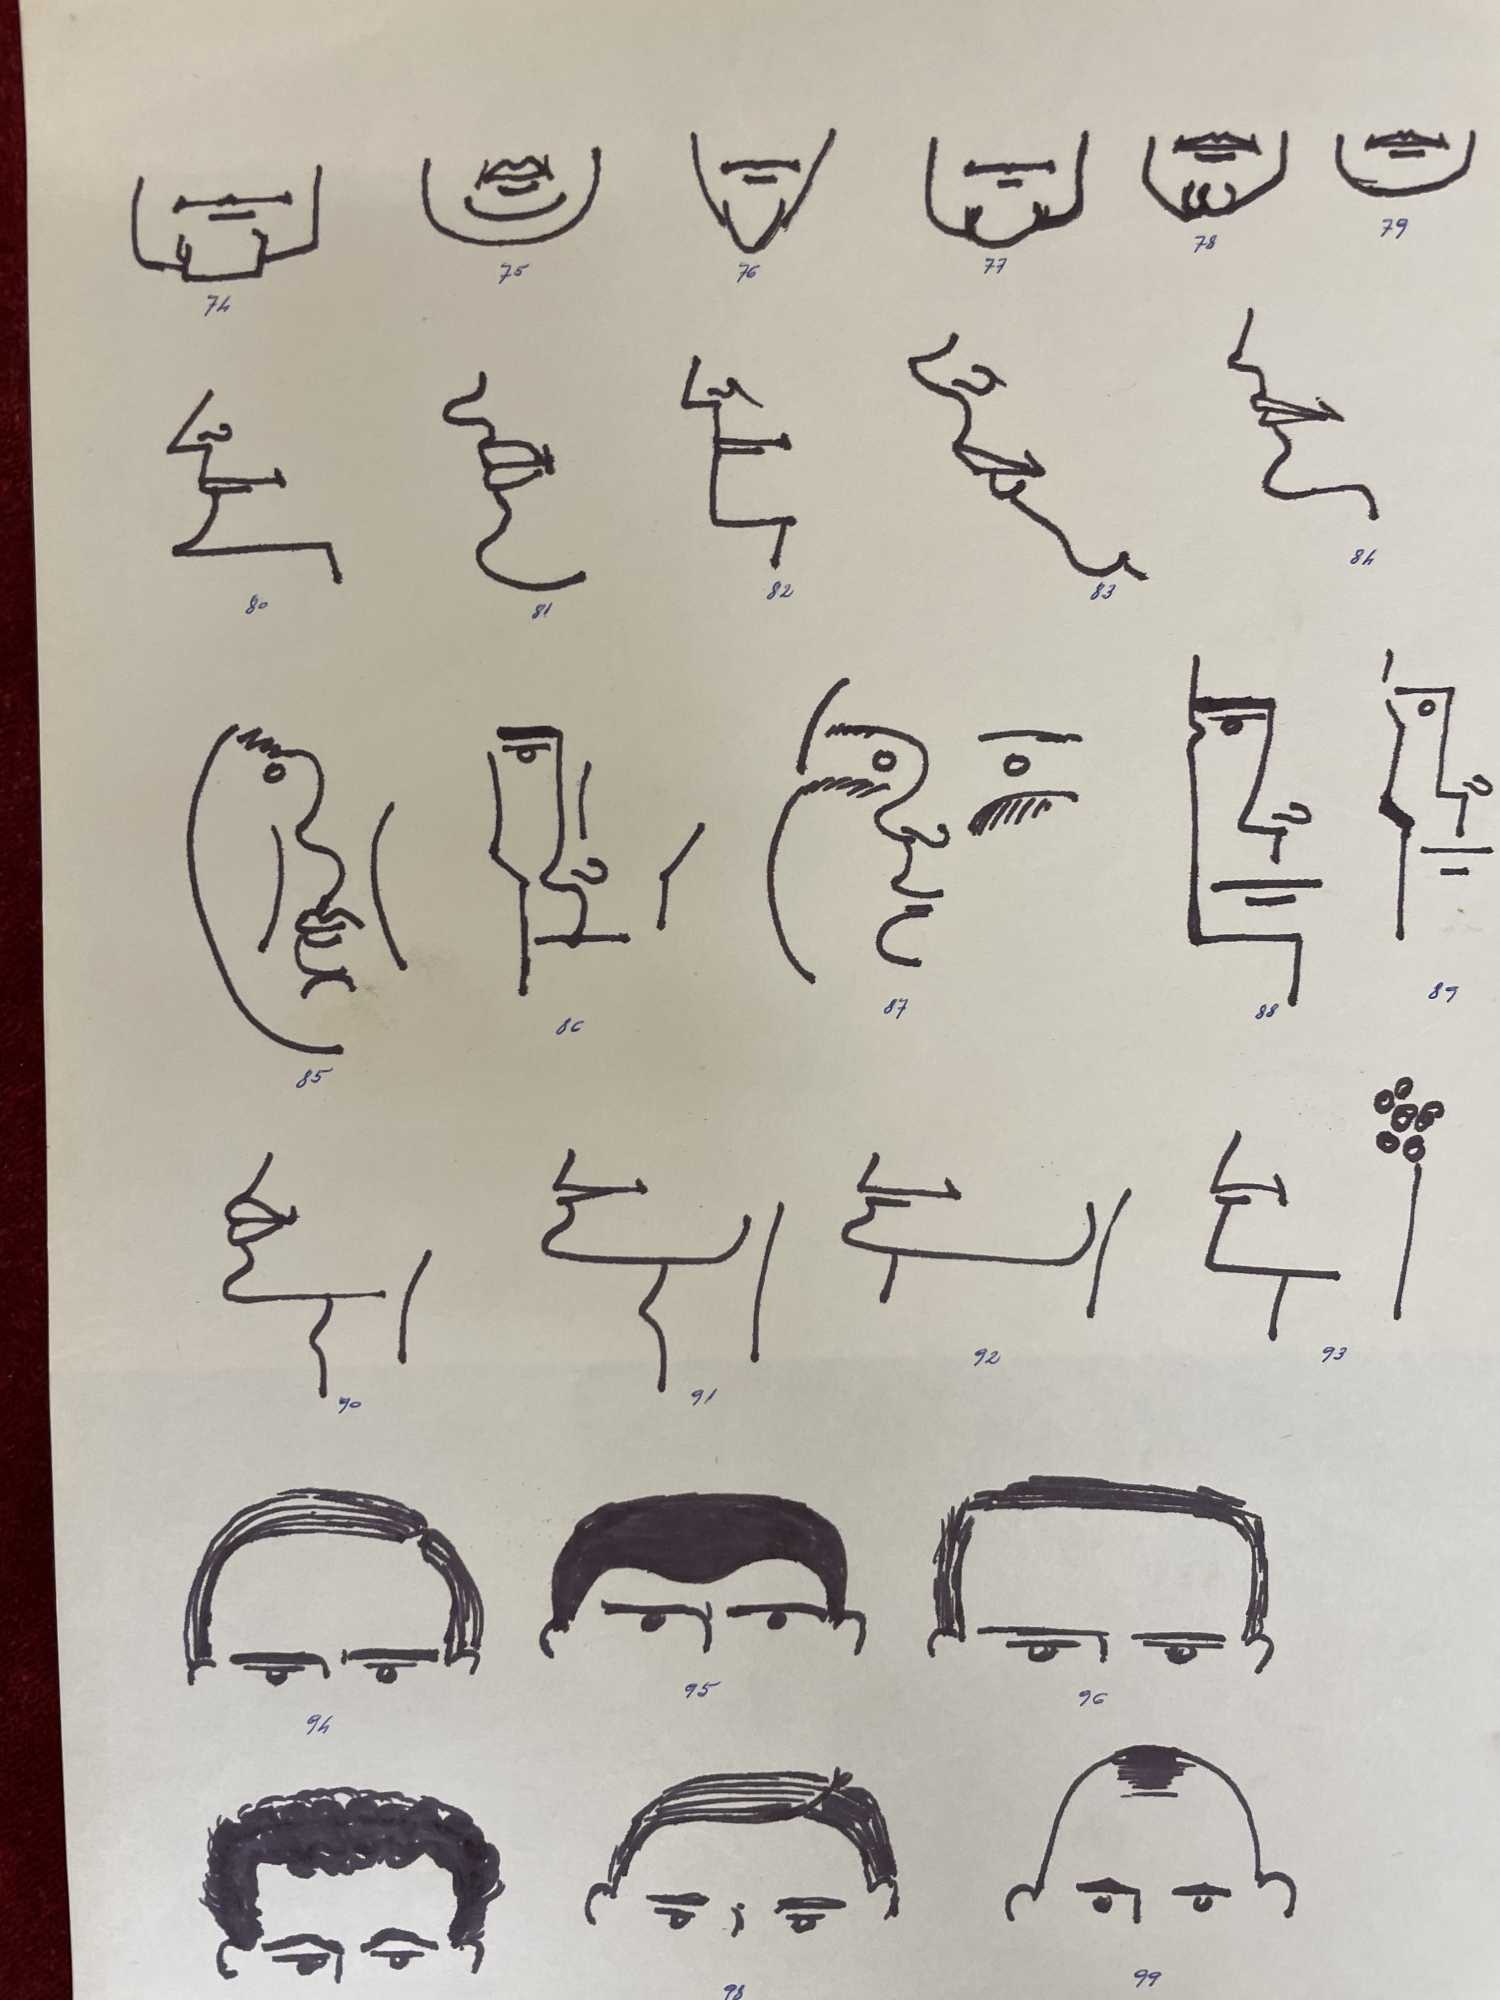 74 75 76 77 78 79
80 81 82 83 84
85 86 87 88 89
90 91 92 93
94 95 96
98 99